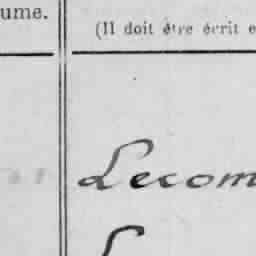 ume.
(Il doit être écrit e
Lecom